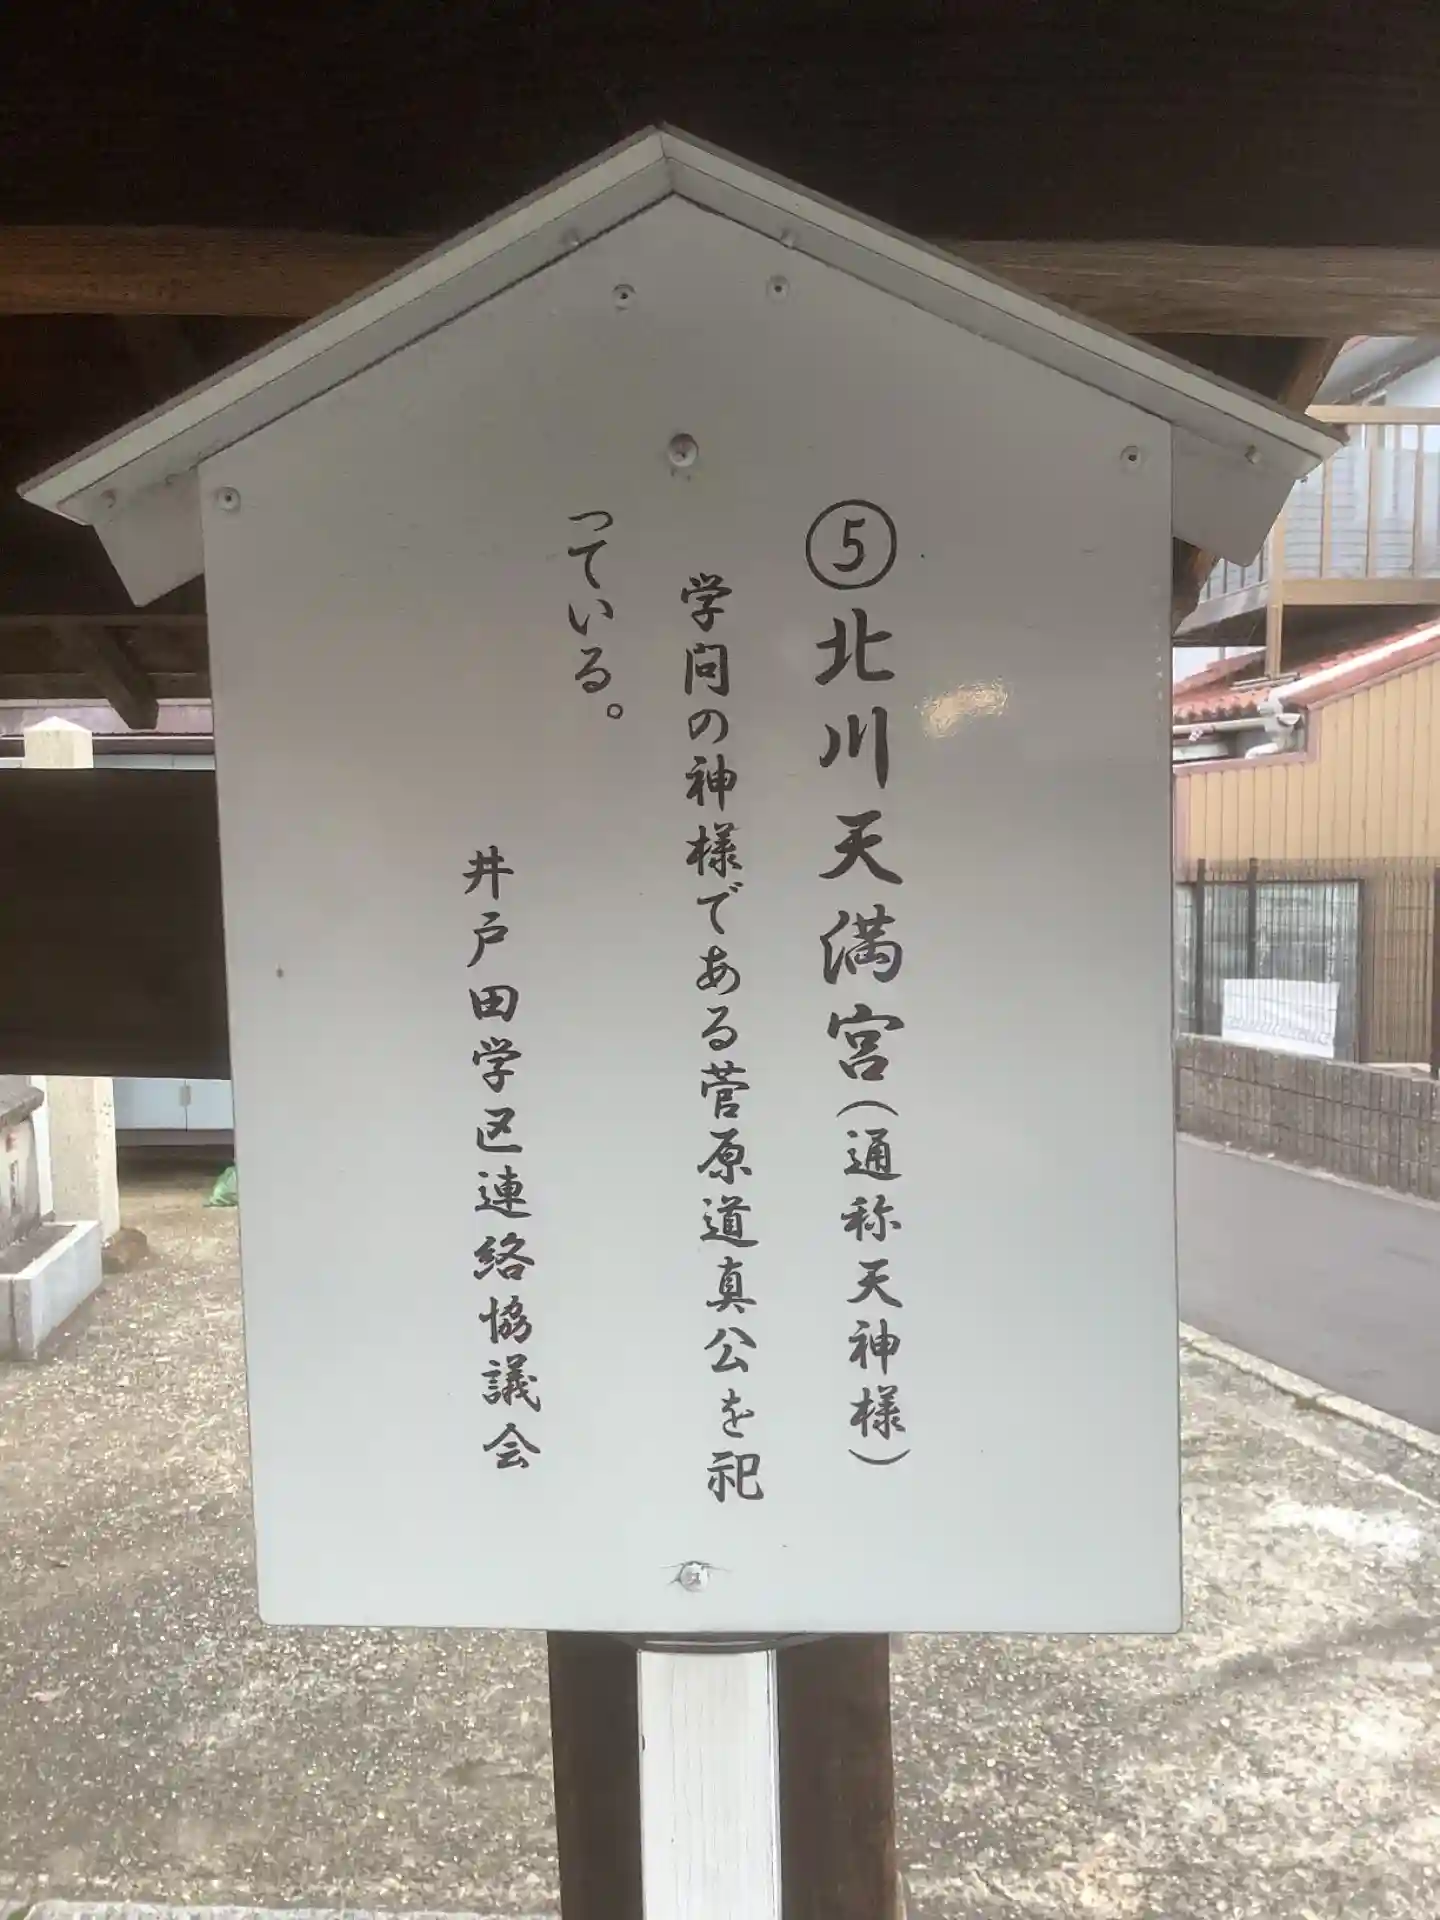 ⑤北川天満宮(通称天神様)
学問の神様である菅原道真公を祀
っている。
井戸田学区連絡協議会